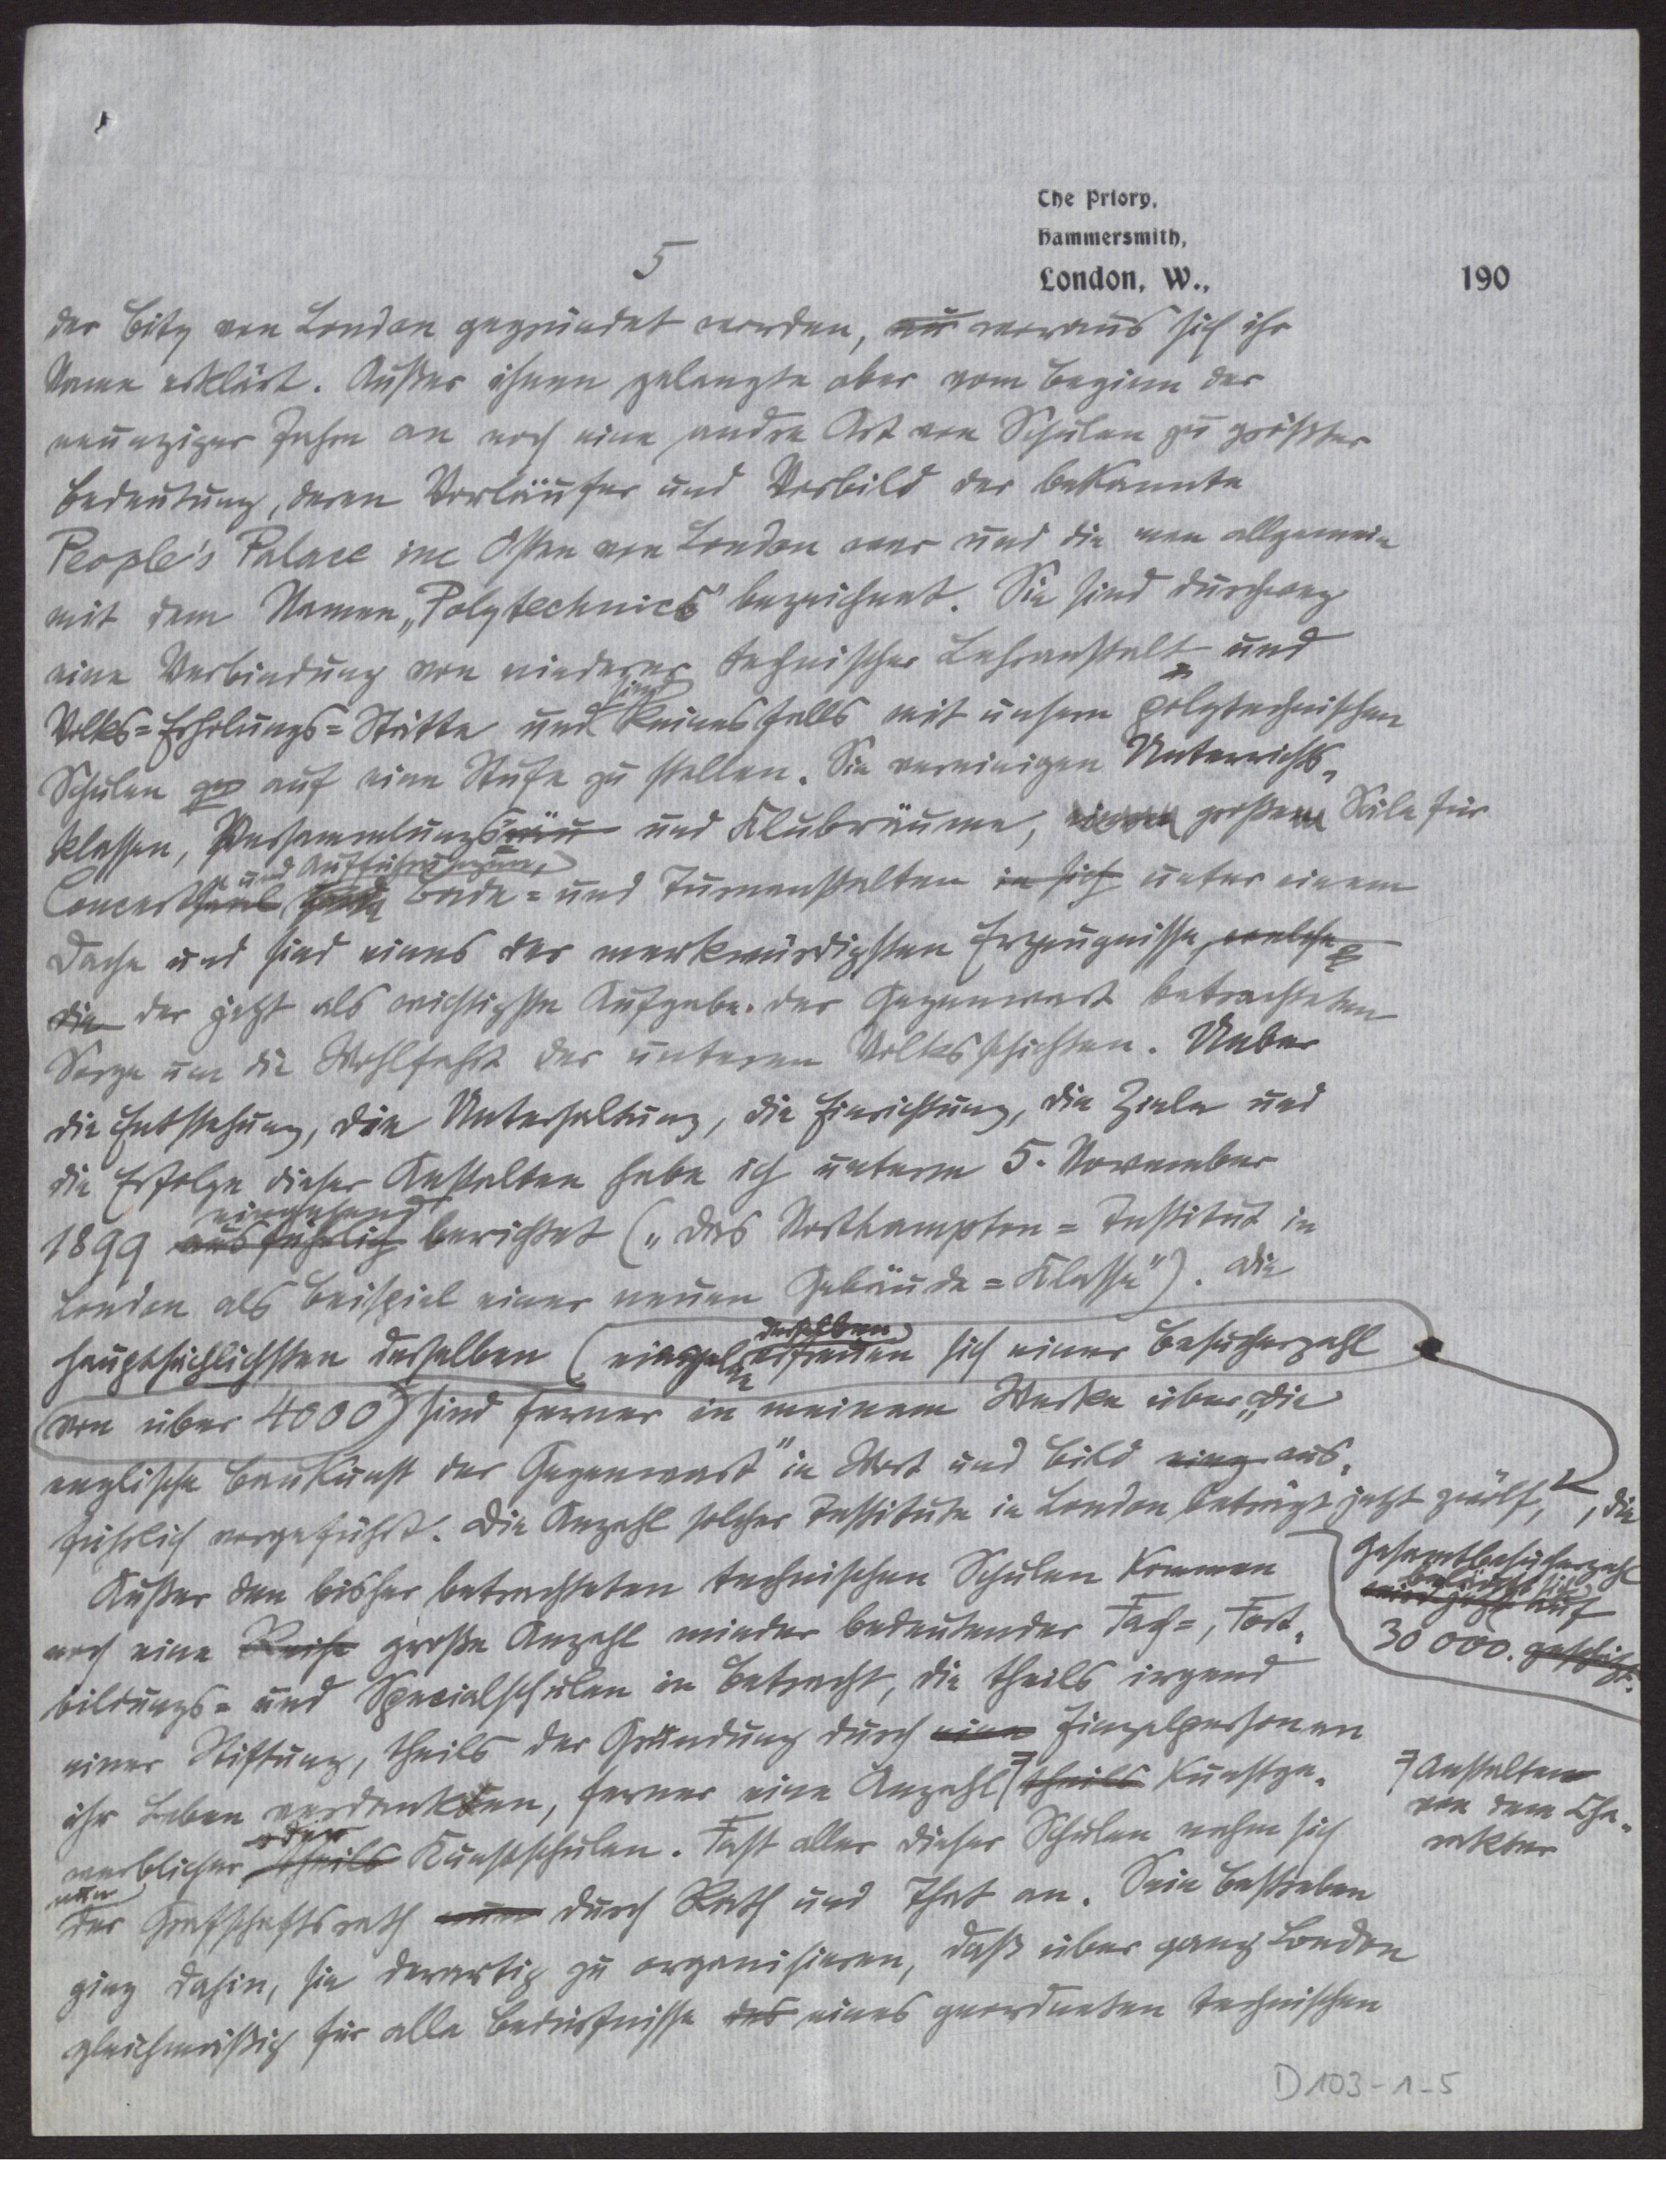 The Priory,
Hammersmith,
London, W., 190
5
der City von London gegründet worden, nur woraus sich ihr
Name erklärt. Außer ihnen gelangte aber vom Beginn der
neunziger Jahre an noch eine andre Art von Schulen zu größter
Bedeutung, deren Vorläufer und Vorbild der bekannte
People's Palace im Osten von London war und die man allgemein
mit dem Namen „Polytechnics" bezeichnet. Sie sind durchweg
eine Verbindung von niederer technischer Lehranstalt und
Volks=Erholungs=Stätte und sind keinesfalls mit unsern polytechnischen
Schulen auf eine Stufe zu stellen. Sie vereinigen Unterrichts-
klassen, Versammlungsräu und Klubräume, einen großen Säle für
und Aufführungen,
Concertsaal Bade= und Turnanstalten in sich unter einem
Dache und sind eines der merkwürdigsten Erzeugnisse, welche
die der jetzt als wichtigste Aufgabe der Gegenwart betrachteten
Sorge um die Wohlfahrt der unteren Volksschichten. Ueber
die Entstehung, die Unterhaltung, die Einrichtung, die Ziele und
die Erfolge dieser Anstalten habe ich unterm 5. November
eingehend
1899 ausführlich berichtet („Das Northampton=Institut in
London als Beispiel einer neuen Gebäude=Klasse"). Die
hauptsächlichsten derselben (einzelne derselben erfreuen sich einer Besucherzahl
von über 4000) sind ferner in meinem Werke über „die
englische Baukunst der Gegenwart" in Wort und Bild eing aus-
führlich vorgeführt. Die Anzahl solcher Institute in London beträgt jetzt zwölf, , die
Gesamtbesucherzahl
beläuft sich
wird jetzt auf
30 000. geschätzt.
Außer den bisher betrachteten technischen Schulen kommen
noch eine Reihe große Anzahl minder bedeutender Fach=, Fort-
bildungs= und Specialschulen in Betracht, die theils irgend
einer Stiftung, theils der Gründung durch eine Einzelpersonen
ihr Leben verdankten, ferner eine Anzahl theils Kunstge-
Anstalten
von dem Cha-
rakter
werblicher oder theils Kunstschulen. Fast aller dieser Schulen nahm sich
nun
der Grafschaftsrath nun durch Rath und That an. Sein Bestreben
ging dahin, sie derartig zu organisieren, daß über ganz London
gleichmäßig für alle Bedürfnisse des eines geordneten technischen
D 103-1-5